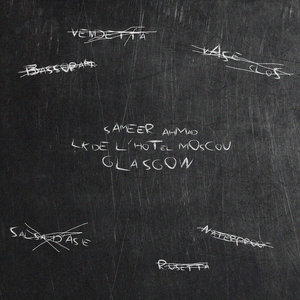 VENDETTA
VASE
CLOS
BASSORAH
SAMEER AHMAD
LKDE L'HOTEL MOSCOU
GLASGOW
SALSA D'ASE
WATERPROOF
ROSETTA